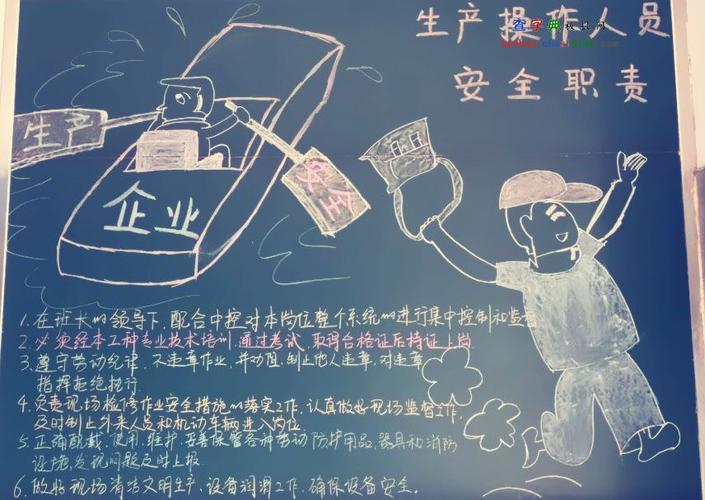 生产操作人员
查字典
安全职责
生产
安全
企业
1.在班长的领导下,配合中控对本岗位整个系统的进行集中控制和监督
2.必须经本工种专业技术培训,通过考试,取得合格证后持证上岗
3.遵守劳动纪律,不违章作业,并劝阻,制止他人违章,对违章
指挥拒绝执行
4.负责现场检修作业安全措施的落实工作,认真做好现场监督工作,
及时制止外来人员和机动车辆进入岗位
5.正确配戴、使用、维护、妥善保管各种劳动防护用品、器具和消防
设施,发现问题及时上报
6.做好现场清洁文明生产、设备润滑工作,确保设备安全。